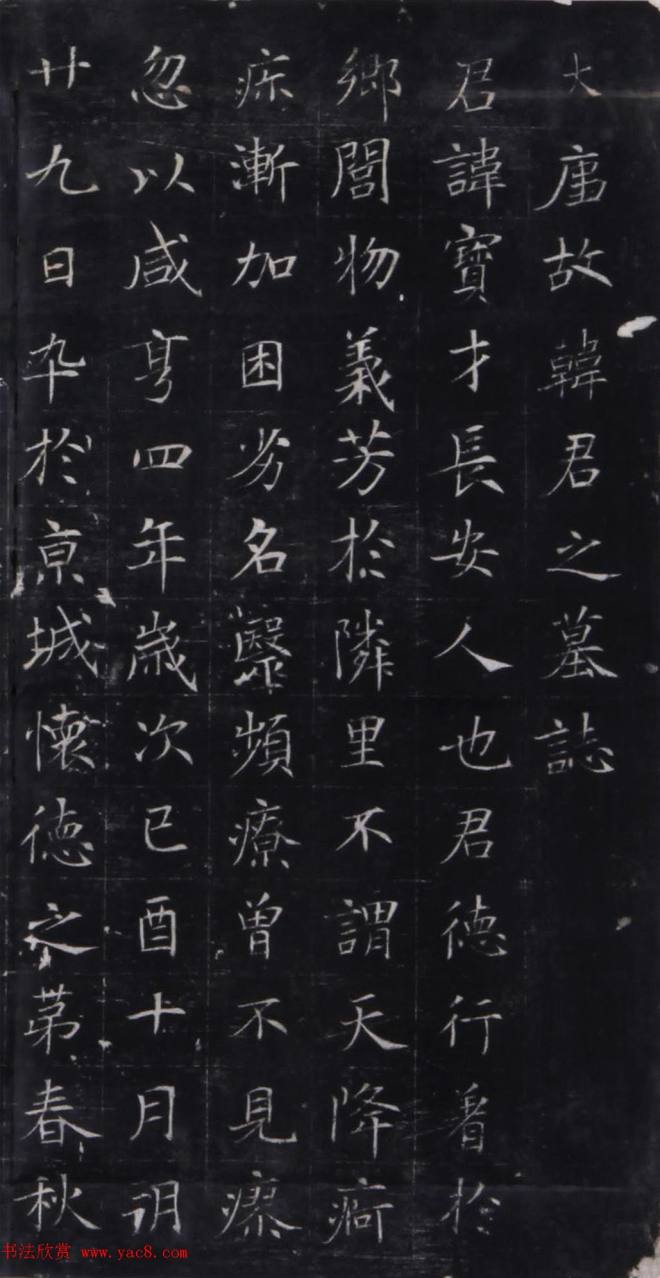 大唐故韓君之墓誌
君諱寶才長安人也君德行著於
鄉閭物義芳於隣里不謂天降痾
疹漸加困劣名毉頻療曾不見瘳
忽以咸亨四年歲次己酉十月朔
廿九日卒於京城懷德之第春秋
书法欣赏 www.yac8.com